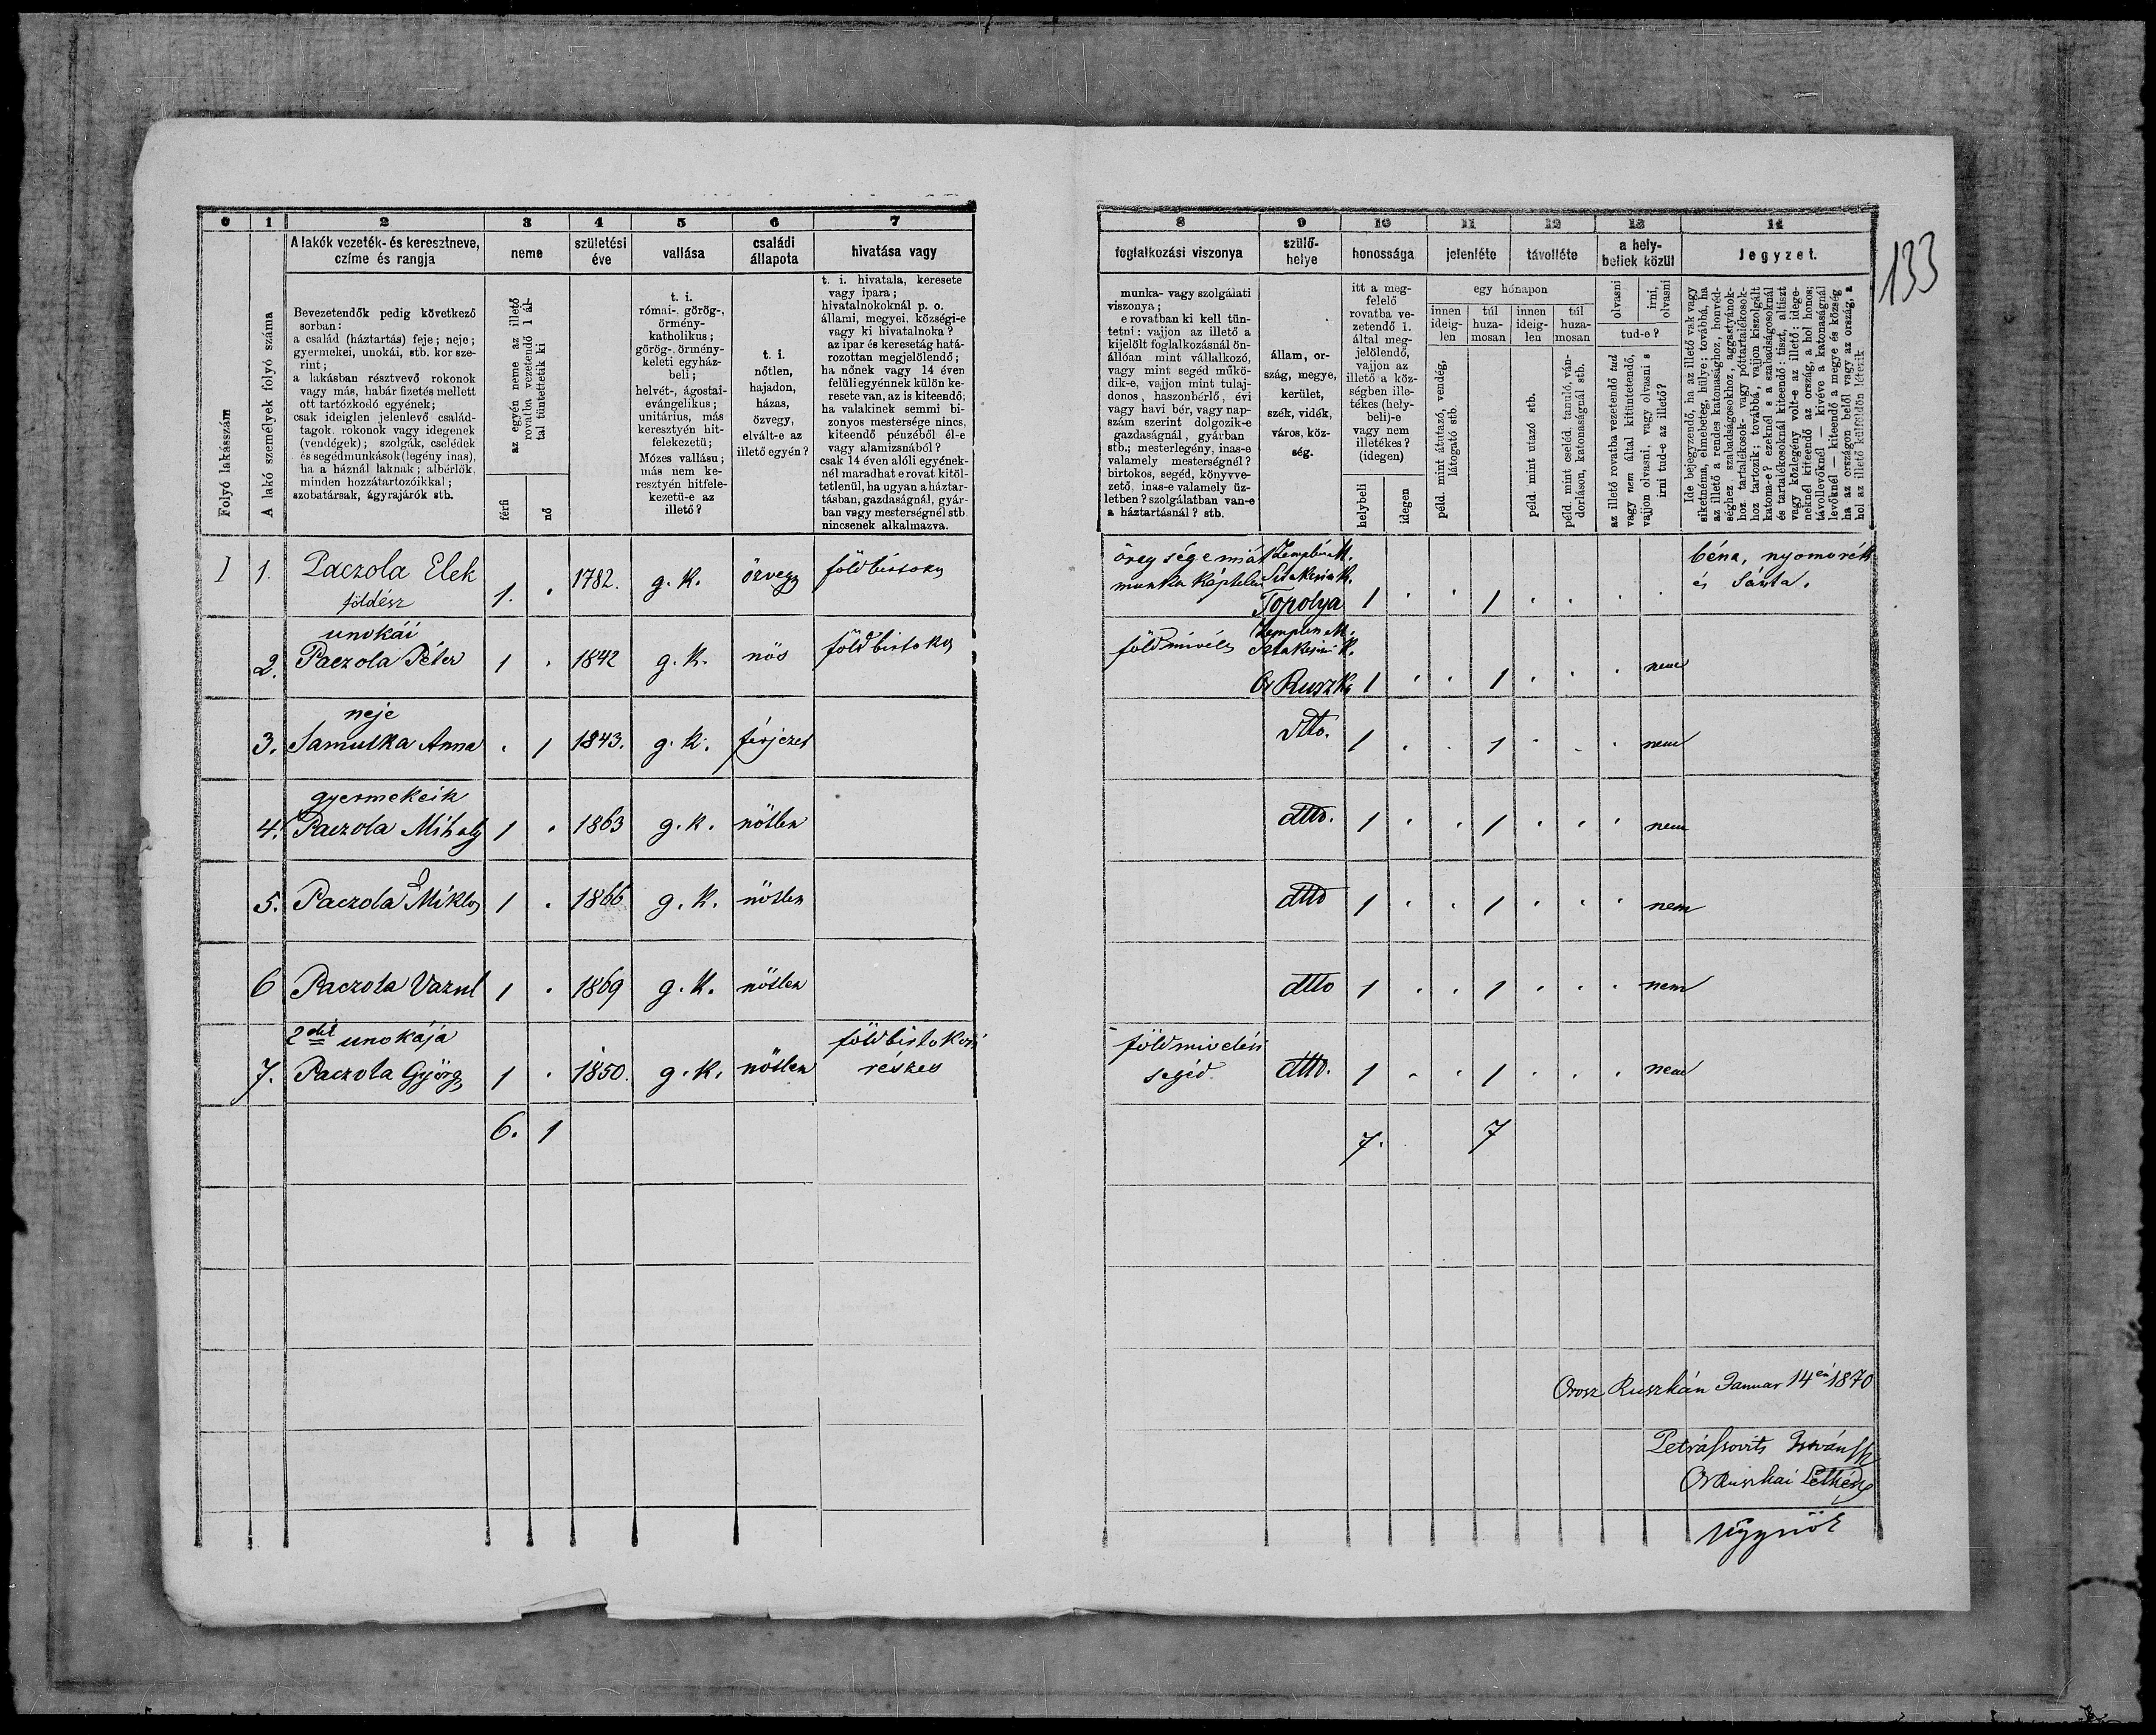 0 1 2 3 4 5 6 7
Folyó lakásszám
A lakó személyek folyó száma
A lakók vezeték- és keresztneve,
czíme és rangja
Bevezetendők pedig következő
sorban:
a család (háztartás) feje; neje;
gyermekei, unokái, stb. kor sze-
rint;
a lakásban résztvevő rokonok
vagy más, habár fizetés mellett
ott tartózkodó egyének;
csak ideiglen jelenlevő család-
tagok, rokonok vagy idegenek
(vendégek); szolgák, cselédek
és segédmunkások (legény inas),
ha a háznál laknak; albérlők,
minden hozzátartozóikkal;
szobatársak, ágyrajárók stb.
neme
az egyén neme az illető
rovatba vezetendő 1 ál-
tal tüntettetik ki
férfi
nő
születési
éve
vallása
t. i.
római-, görög-,
örmény-
katholikus;
görög-, örmény-
keleti egyház-
beli;
helvét-, ágostai-
evángelikus;
unitárius, más
keresztyén hit-
felekezetü;
Mózes vallásu;
más nem ke-
resztyén hitfele-
kezetü-e az
illető?
családi
állapota
t. i.
nőtlen,
hajadon,
házas,
özvegy,
elvált-e az
illető egyén?
hivatása vagy
t. i. hivatala, keresete
vagy ipara;
hivatalnokoknál p. o.
állami, megyei, községi-e
vagy ki hivatalnoka?
az ipar és keresetág hatá-
rozottan megjelölendő;
ha nőnek vagy 14 éven
felüli egyénnek külön ke-
resete van, az is kiteendő;
ha valakinek semmi bi-
zonyos mestersége nincs,
kiteendő pénzéből él-e
vagy alamizsnából?
csak 14 éven alóli egyének-
nél maradhat e rovat kitöl-
tetlenül, ha ugyan a háztar-
tásban, gazdaságnál, gyár-
ban vagy mesterségnél stb.
nincsenek alkalmazva.
I 1. Paczola Elek 1. . 1782. g. k. özvegy földbirtokos
földész
unokái
2. Paczola Péter 1 . 1842 g. k. nös földbirtokos
neje
3. Samulka Anna . 1 1843. g. k. férjezet
gyermekeik
4. Paczola Mihaly 1 . 1863 g. k. nötlen
5. Paczola Miklos 1 . 1866 g. k. nötlen
6 Paczola Vazul 1 . 1869 g. k. nötlen
2dik unokája földbirtokosi
7. Paczola György 1 . 1850. g. k. nötlen részes
6. 1
8 9 10 11 12 13 14
foglalkozási viszonya
munka- vagy szolgálati
viszonya;
e rovatban ki kell tün-
tetni: vajjon az illető a
kijelölt foglalkozásnál ön-
állóan mint vállalkozó,
vagy mint segéd műkö-
dik-e, vajjon mint tulaj-
donos, haszonbérlő, évi
vagy havi bér, vagy nap-
szám szerint dolgozik-e
gazdaságnál, gyárban
stb.; mesterlegény, inas-e
valamely mesterségnél?
birtokos, segéd, könyvve-
zető, inas-e valamely üz-
letben? szolgálatban van-e
a háztartásnál? stb.
szülő-
helye
állam, or-
szág, megye,
kerület,
szék, vidék,
város, köz-
ség.
honossága
itt a meg-
felelő
rovatba ve-
zetendő 1.
által meg-
jelölendő,
vajjon az
illető a köz-
ségben ille-
tékes (hely-
beli)-e
vagy nem
illetékes?
(idegen)
helybeli
idegen
jelenléte
távolléte
egy hónapon
innen
ideig-
len
túl
huza-
mosan
innen
ideig-
len
túl
huza-
mosan
péld. mint átutazó, vendég,
látogató stb.
péld. mint utazó stb.
péld. mint cseléd, tanuló, ván-
dorláson, katonaságnál stb.
a hely-
beliek közül
olvasni
irni,
olvasni
tud-e?
az illető rovatba vezetendő tud
vagy nem által kitüntetendő,
vajjon olvasni, vagy olvasni s
irni tud-e az illető?
Jegyzet.
Ide bejegyzendő, ha az illető vak vagy
siketnéma, elmebeteg, hülye; továbbá, ha
az illető a rendes katonasághoz, honvéd-
séghez, szabadságosokhoz, aggastyánok-
hoz tartalékosok- vagy póttartalékosok-
hoz tartozik; továbbá, vajjon kiszolgált
katona-e? ezeknél s a szabadságosoknál
és tartalékosoknál kiteendő: tiszt, altiszt
vagy közlegény volt-e az illető; idege-
neknél kiteendő az ország, a hol honos;
távollevőknél — kivéve a katonaságnál
levőknél — kiteendő a megye és község
ha az országon belől vagy az ország, a
hol az illető külföldön létezik
133
öregsége miát Zemplén M. béna, nyomorék
munka képtelen Sztakcsin K. és Sánta.
Topolya 1 . . 1 . . . .
Zemplén M.
földmivéles Sztakcsin K.
Or Ruszka 1 . . 1 . . . nem
dtto. 1 . . 1 . . . nem
dtto. 1 . . 1 . . . nem
dtto 1 . . 1 . . . nem
dtto 1 . . 1 . . . nem
földmivelési
segéd. dtto. 1 . . 1 . . . nem
7. 7
Orosz Ruszkán Januar 14én 1870
Petrássovits István
OrRuszkai
ügynök